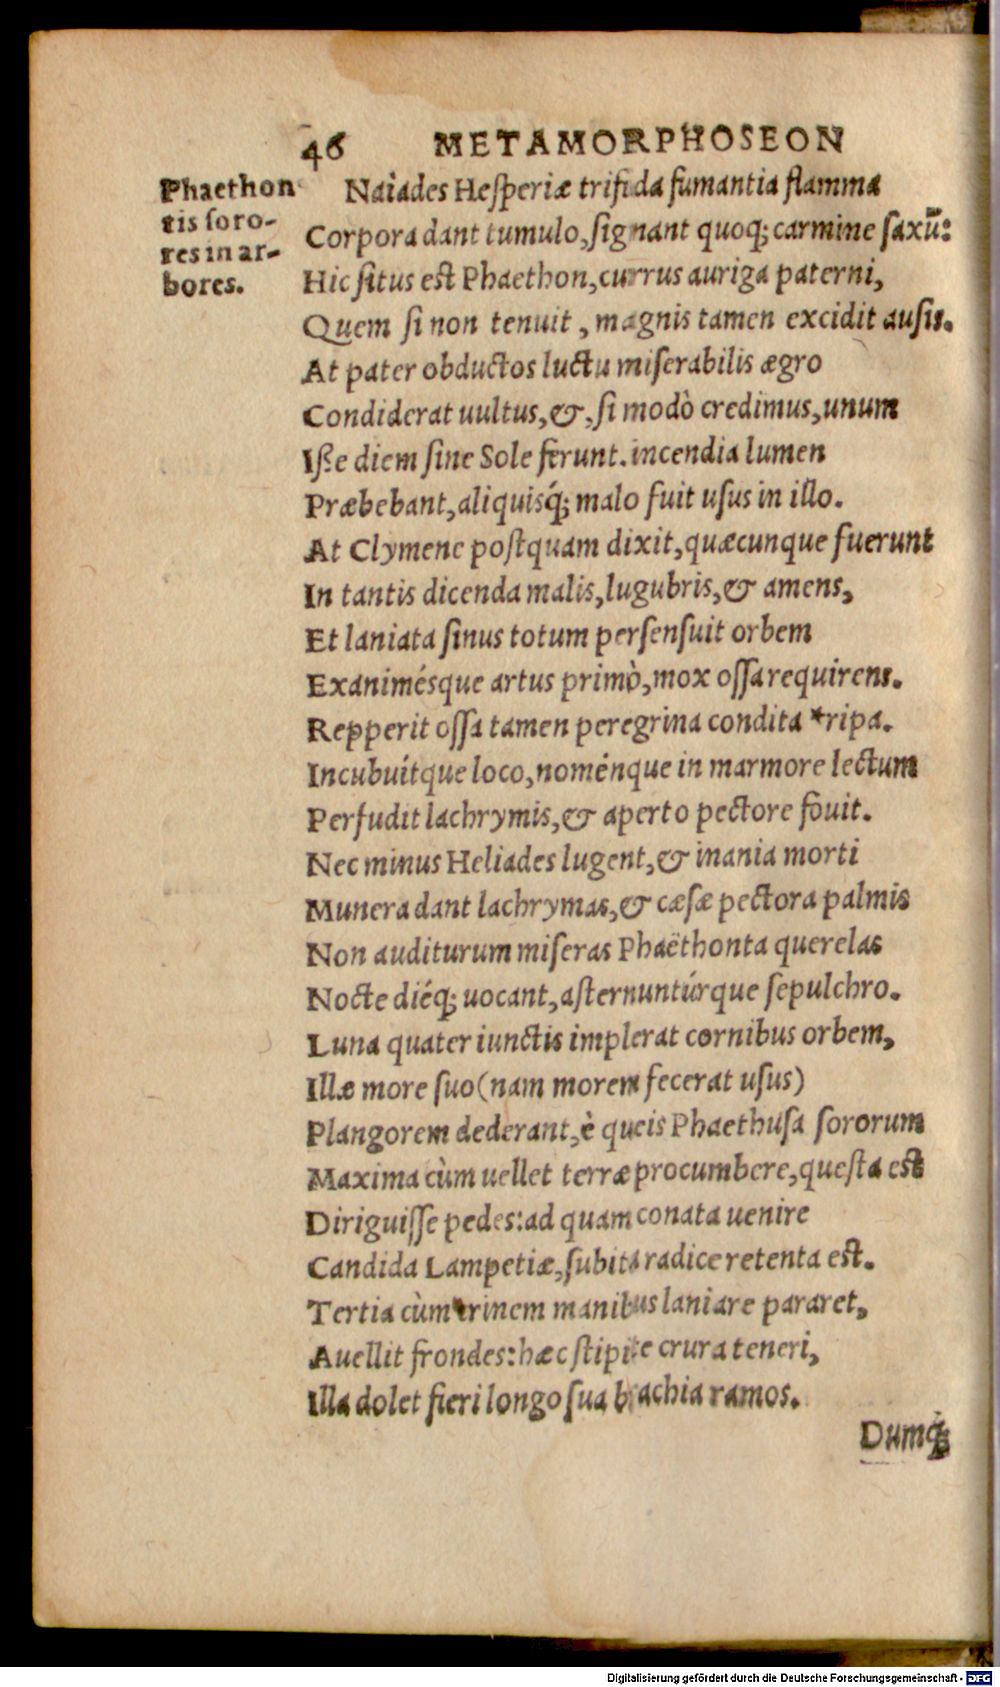 46 METAMORPHOSEON
Phaethon
tis ſoro-
res in ar-
bores.
Naiades Heſperiæ trifida fumantia flamma
Corpora dant tumulo, ſignant quoq; carmine ſaxũ:
Hic ſitus est Phaethon, currus auriga paterni,
Quem ſi non tenuit, magnis tamen excidit auſis.
At pater obductos luctu miſerabilis ægro
Condiderat uultus, &, ſi modò credimus, unum
Iſſe diem ſine Sole ferunt. incendia lumen
Præbebant, aliquisq́; malo fuit uſus in illo.
At Clymene poſtquam dixit, quæcunque fuerunt
In tantis dicenda malis, lugubris, & amens,
Et laniata ſinus totum perſenſuit orbem
Exanimésque artus primò, mox oſſa requirens.
Repperit oſſa tamen peregrina condita *ripa.
Incubuítque loco, noménque in marmore lectum
Perfudit lachrymis, & aperto pectore fouit.
Nec minus Heliades lugent, & inania morti
Munera dant lachrymas, & cæſæ pectora palmis
Non auditurum miſeras Phaëthonta querelas
Nocte diéq; uocant, aſternuntúrque ſepulchro.
Luna quater iunctis implerat cornibus orbem,
Illæ more ſuo (nam morem fecerat uſus)
Plangorem dederant, è queis Phaethuſa ſororum
Maxima cùm uellet terræ procumbere, queſta est
Diriguiſſe pedes: ad quam conata uenire
Candida Lampetiæ, ſubita radice retenta est.
Tertia cùm crinem manibus laniare pararet,
Auellit frondes: hæc ſtipite crura teneri,
Illa dolet fieri longo ſua brachia ramos.
Dumq́;
Digitalisierung gefördert durch die Deutsche Forschungsgemeinschaft - DFG